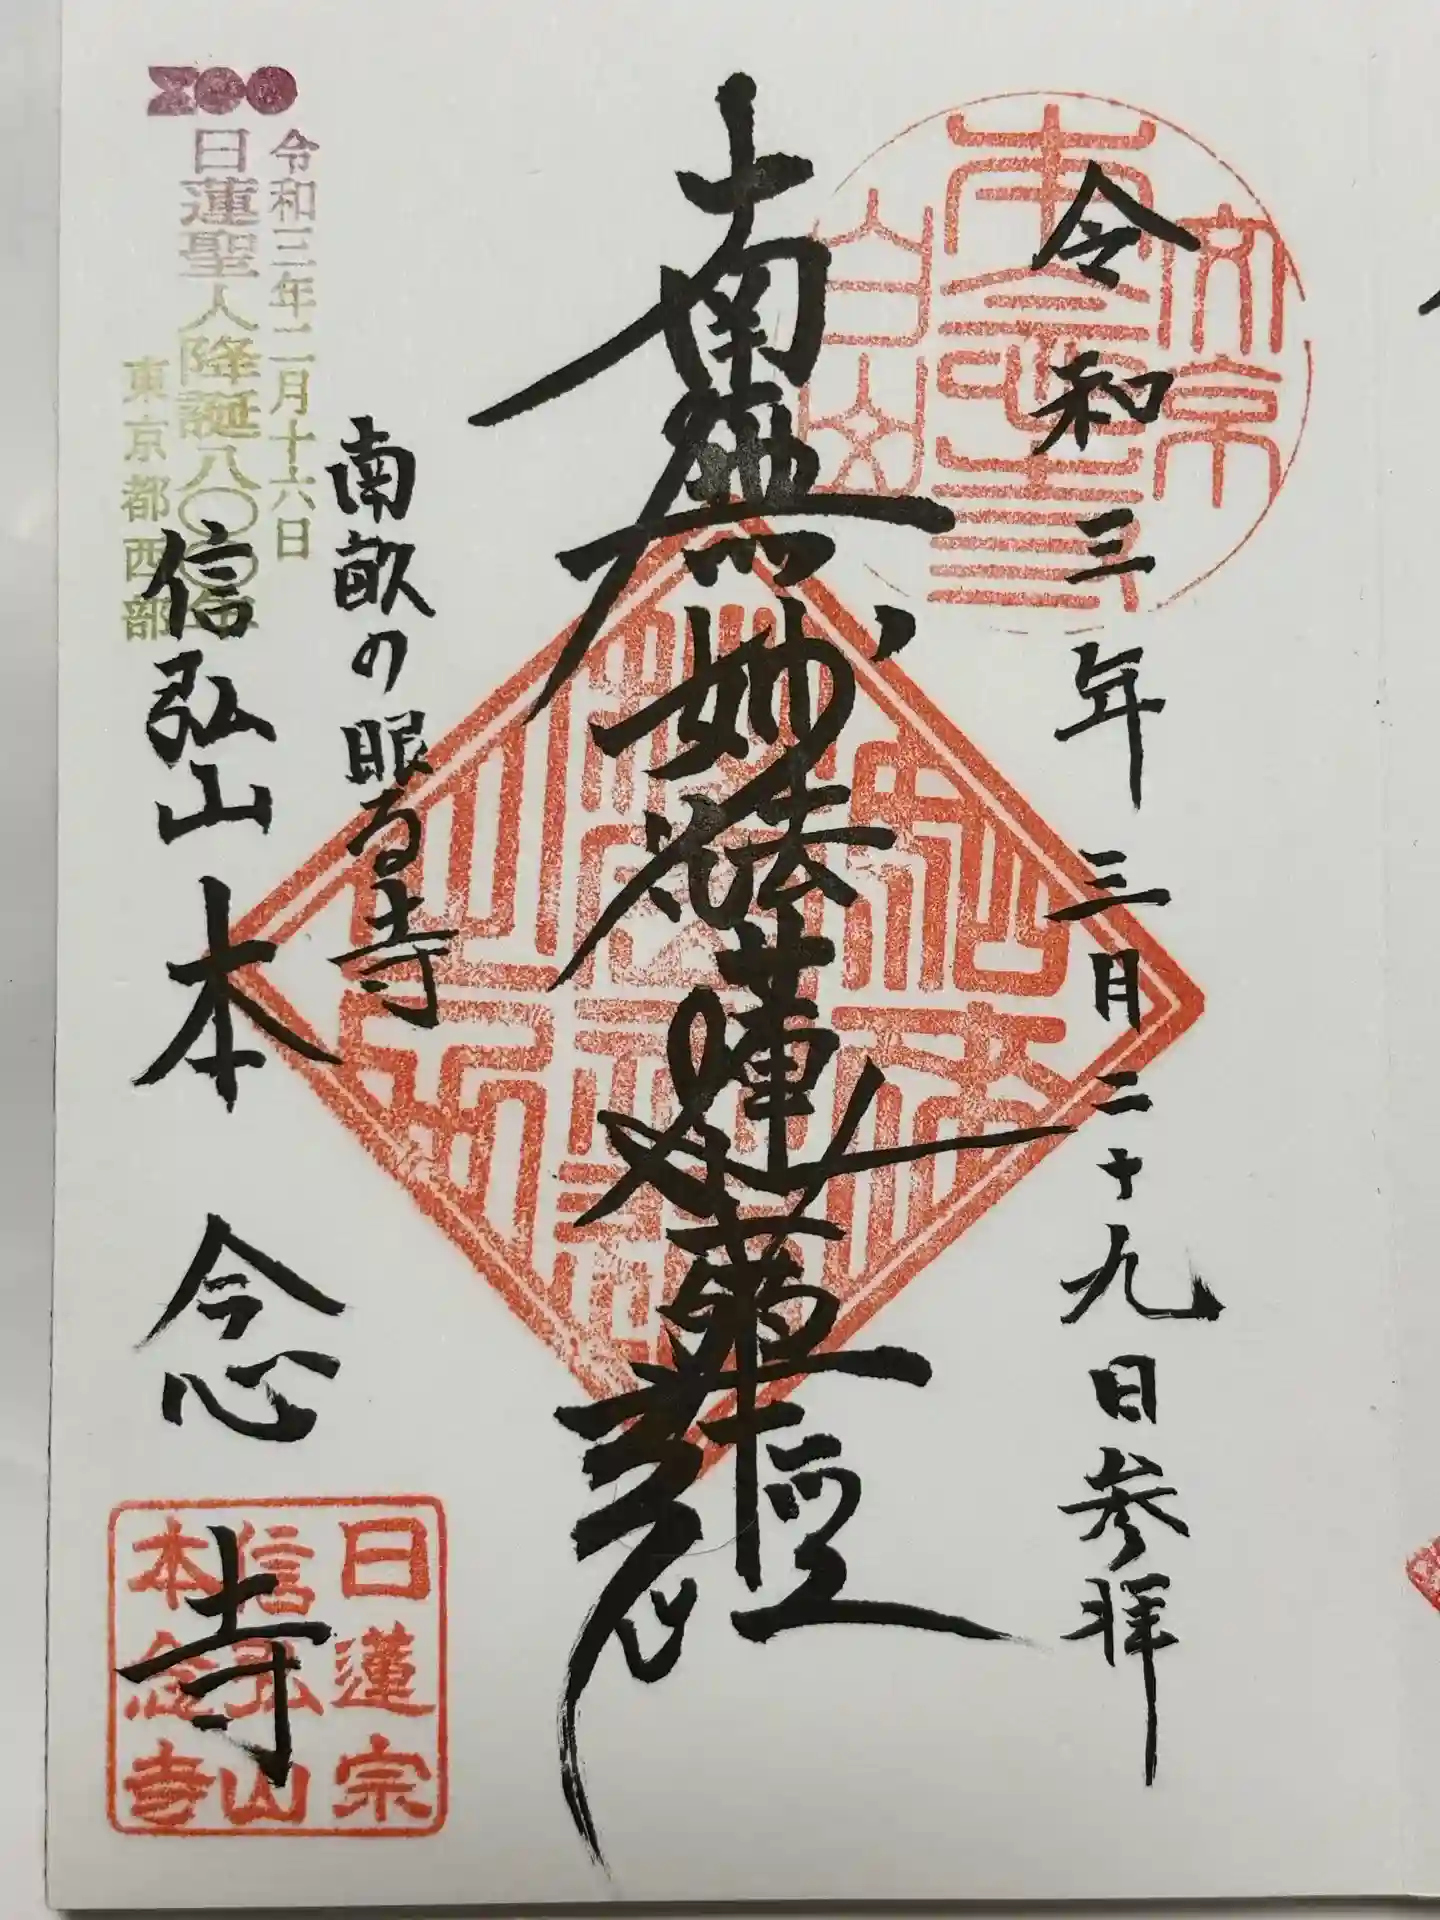 令和三年三月二十九日参拝
南無妙法蓮華経
南畝の眠る寺
信弘山本念寺
令和三年二月十六日
日蓮聖人降誕八〇〇年
東京都西部
日蓮宗
信弘山
本念寺